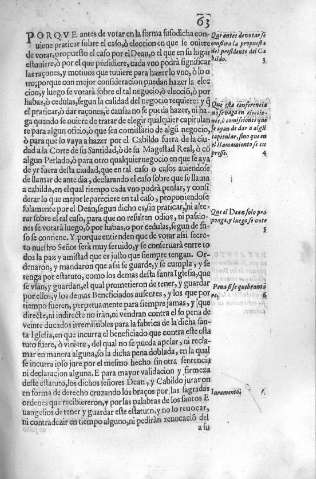 63
PORQVE antes de votar en la forma susodicha con
uiene praticar sobre el caso, o eleccion en que se ouiere
de votar, con proposicion del caso por el Dean, o el que en su lugar
estuuiere, ò por el que presidiere, cada vno podrá significar
las razones, y motiuos que tuuiere para hazer lo vno, ò lo o-
tro; porque con mejor conocimiento puedan hazer la elec-
cion, y luego se votará sobre el tal negocio, ò elecciō, ò por
habas, ò cedulas, segun la calidad del negocio requiere: y q̃
el praticar, ò dar razones, ò causas no se pueda hazer, ni ha-
ga quando se ouiere de tratar de elegir qualquier capitulan
te para algun oficio, ò que sea comissario de algun negocio,
ò para que lo vaya a hazer por el Cabildo fuera de la ciu-
dad a la Corte de su Santidad, ò de su Magestad Real, ò cō
algun Perlado, ò para otro qualquier negocio en que se aya
de yr fuera desta ciudad, que en tal caso ò casos auiendose
de llamar de ante dia, declarando el caso sobre que se llama
a cabildo, en el qual tiempo cada vno podrá pensar, y consi-
derar lo que mejor le pareciere en tal caso, proponiendose
solamente por el Dean, segun dicho es, sin praticar, ni alte-
rar sobre el tal caso, para que no resulten odios, ni passio-
nes se votará luego, ò por habas, ò por cedulas, segun de su-
so se contiene. Y porque entienden que de votar assi secre-
to nuestro Señor será muy seruido, y se conseruará entre to
dos la paz y amistad que es justo que siempre tengan. Or-
denaron, y mandaron que assi se guarde, y se cumpla, y se
tenga por estatuto, como los demas desta santa Iglesia, que
se vsan, y guardan, el qual prometieron de tener, y guardar
por ellos, y los demas Beneficiados ausentes, y los que por
tiempo fueren, perpetuamente para siempre jamas, y que
directe, ni indirecte no irán, ni vendran contra el so pena de
veinte ducados irremissibles para la fabrica de la dicha san-
ta Iglesia, en que incurra el beneficiado que contra este esta
tuto fuere, ò viniere, del qual no se pueda apelar, ni recla-
mar en manera alguna, so la dicha pena doblada, en la qual
se incurra ipso iure por el mismo hecho sin otra sentencia,
ni declaracion alguna. E para mayor validacion y firmeza
deste estatuto, los dichos señores Dean, y Cabildo juraron
en forma de derecho cruzando los braços por las sagradas
ordenes que recibieron, y por las palabras de los santos E
uangelios de tener y guardar este estatuto, y no lo reuocar,
ni contradezir en tiempo alguno, ni pedirán reuocacion del
a su
Que antes de votar se
confiera la propuesta
del presidente del Ca
bildo. 3
Que esta conferencia
no se haga en eleccio-
nes, ò comissiones que
se ayan de dar a algū
capitular, sino que en
el llamamiento se ex
presse. 4
Que el Dean solo pro
ponga, y luego se vote
5
Pena si se quebranta
re. 6
Iuramento. 7